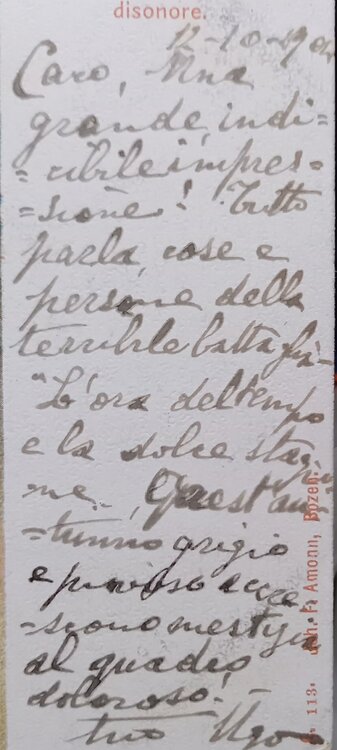 disonore.
12-10-904
Caro, Una
grande, indi=
=cibile impres=
=sione! Tutto
parla, cose e
persone della
terribile battaglia-
"L'ora del tempo
e la dolce stagio
ne". Quest'au=
=tunno grigio
e piovoso accre
=scono mestizia
al quadro
doloroso! -
tuo Ugo
113. Joh. F. Amonn, Bozen.